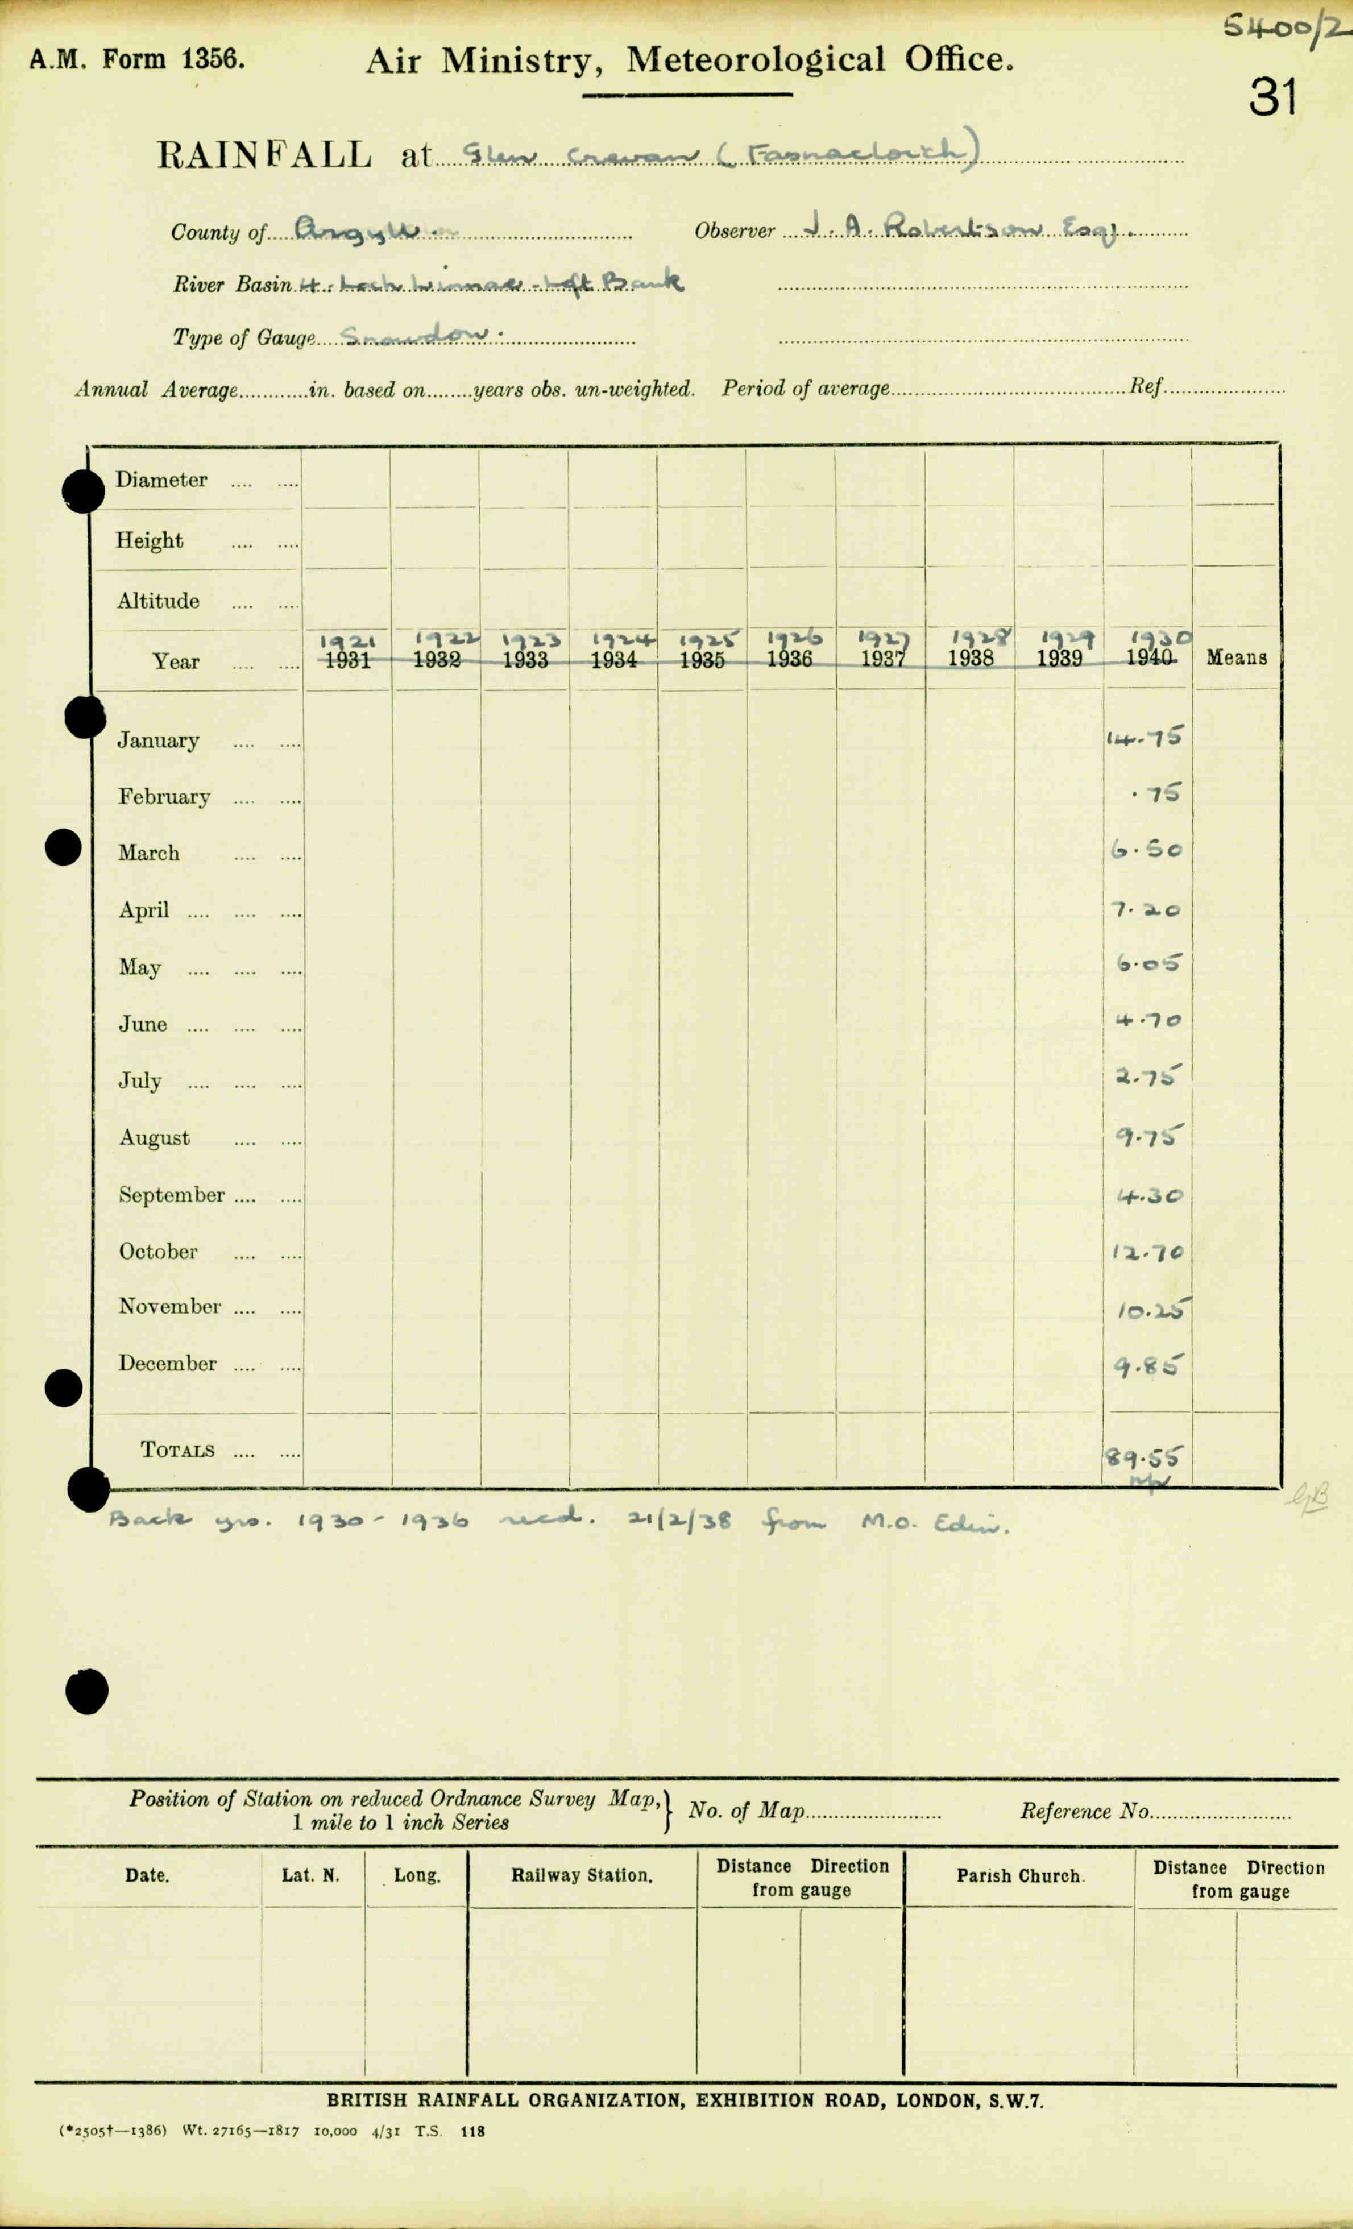 5400/2
A.M. Form 1356. Air Ministry, Meteorological Office.
31
RAINFALL at Glen Creran (Fasnacloich)
County of Argyll. Observer J. A. Robertson Esq.
River Basin 4. Loch Linnhe - Left Bank
Type of Gauge Snowdon.
Annual Average in. based on years obs. un-weighted. Period of average Ref.
Diameter
Height
Altitude
1921 1922 1923 1924 1925 1926 1927 1928 1929 1930
Year 1931 1932 1933 1934 1935 1936 1937 1938 1939 1940 Means
January 14.75
February .75
March 6.50
April 7.20
May 6.05
June 4.70
July 2.75
August 9.75
September 4.30
October 12.70
November 10.25
December 9.85
TOTALS 89.55
GB
Back yrs. 1930 - 1936 recd. 21/2/38 from M.O. Edin.
Position of Station on reduced Ordnance Survey Map, } No. of Map Reference No.
1 mile to 1 inch Series
Date. Lat. N. Long. Railway Station. Distance Direction from gauge Parish Church. Distance Direction from gauge
BRITISH RAINFALL ORGANIZATION, EXHIBITION ROAD, LONDON, S.W.7.
(*2505†—1386) Wt. 27165—1817 10,000 4/31 T.S. 118